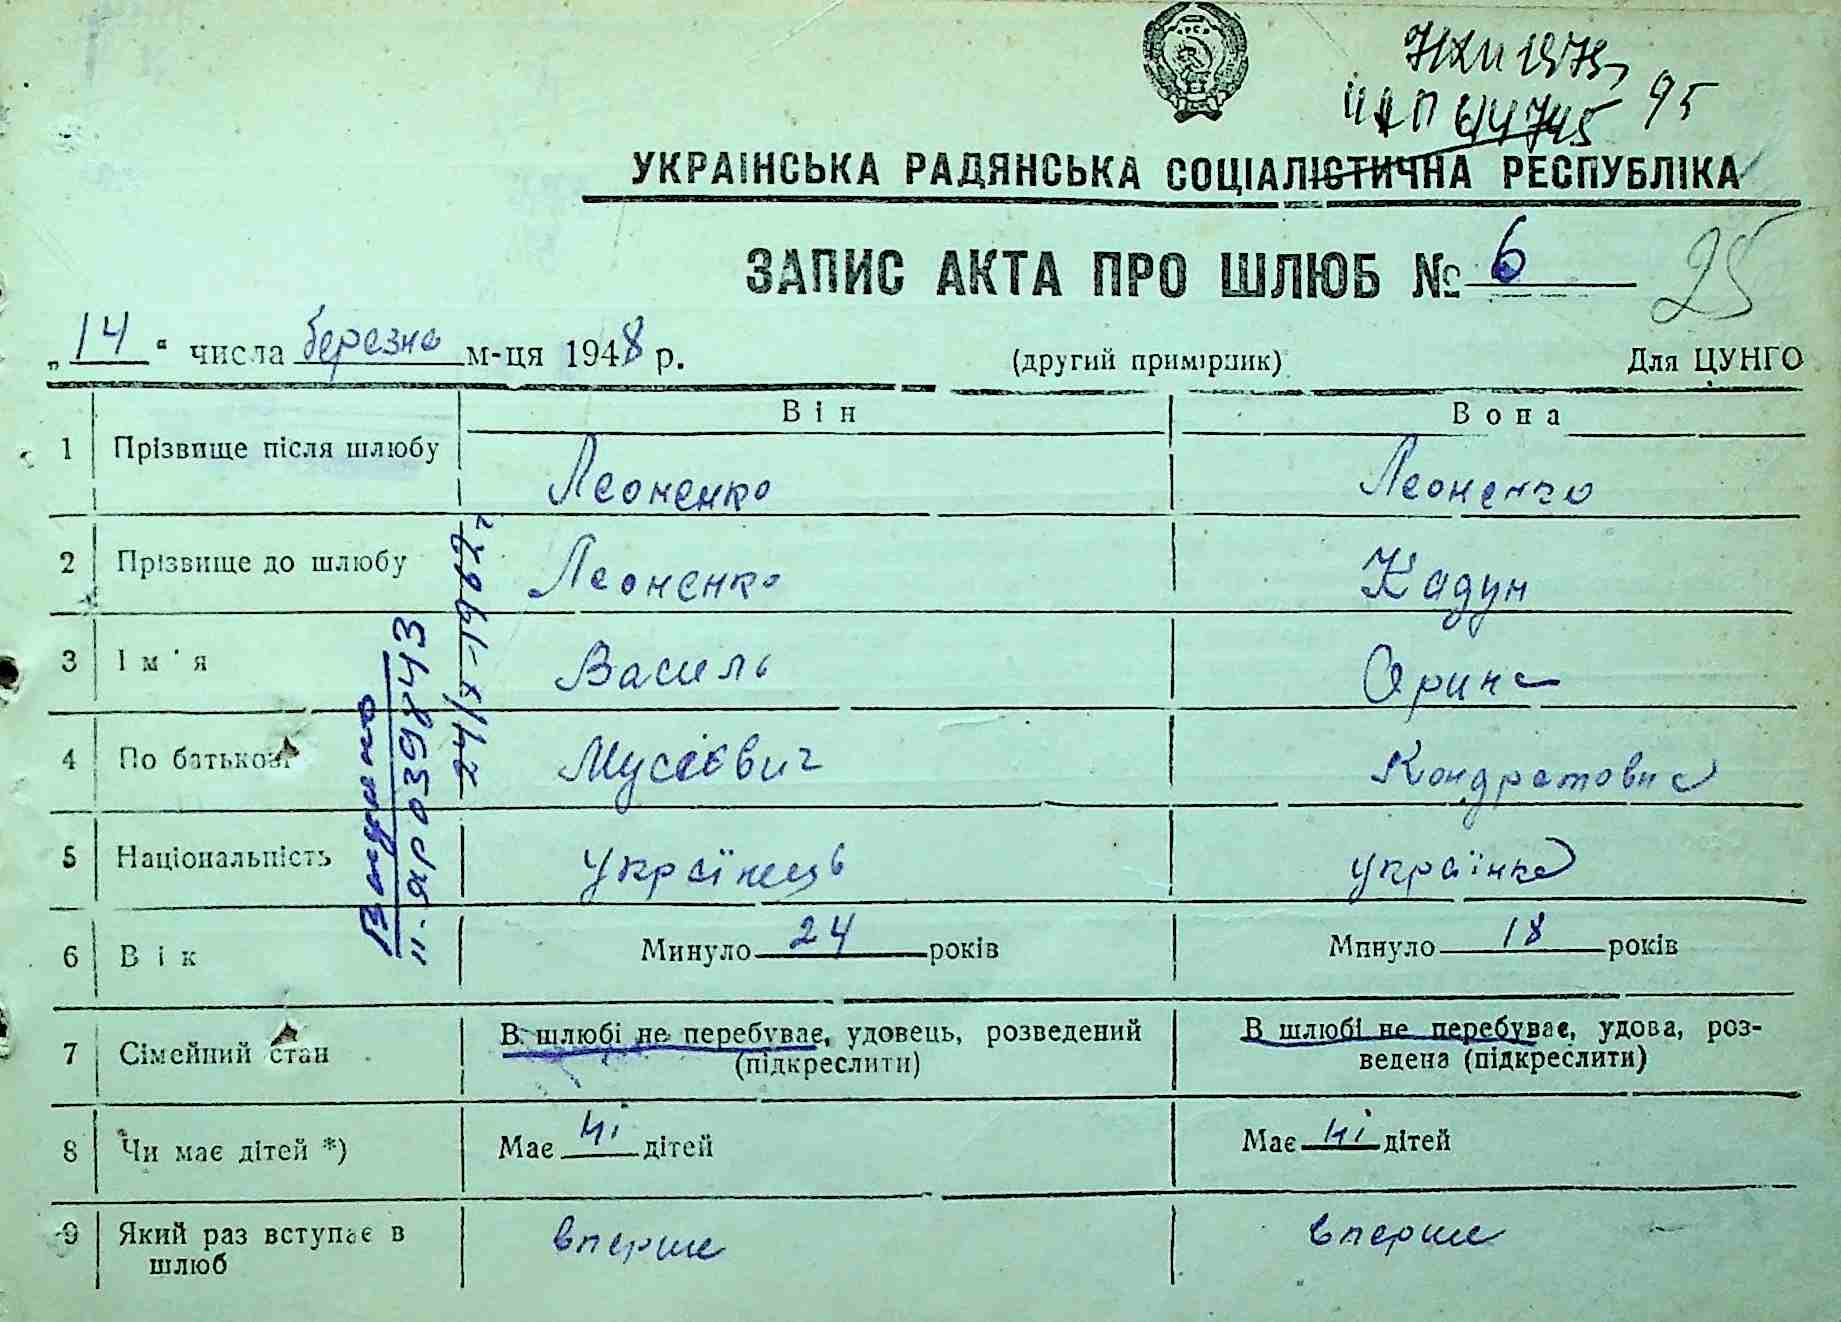 95
УКРАЇНСЬКА РАДЯНСЬКА СОЦІАЛІСТИЧНА РЕСПУБЛІКА
ЗАПИС АКТА ПРО ШЛЮБ № 6
25
„14“ числа березня м-ця 1948 р. (другий примірник) Для ЦУНГО
Він Вона
1 Прізвище після шлюбу Леоненко Леоненко
2 Прізвище до шлюбу Леоненко Кадун
3 Ім'я Василь Орина
4 По батькові Мусієвич Кондратовна
5 Національність українець українка
6 Вік Минуло 24 років Минуло 18 років
7 Сімейний стан В шлюбі не перебуває, удовець, розведений (підкреслити) В шлюбі не перебуває, удова, роз-
ведена (підкреслити)
8 Чи має дітей *) Має ні дітей Має ні дітей
9 Який раз вступає в шлюб вперше вперше
ЯР 0398443
24/X-1962г